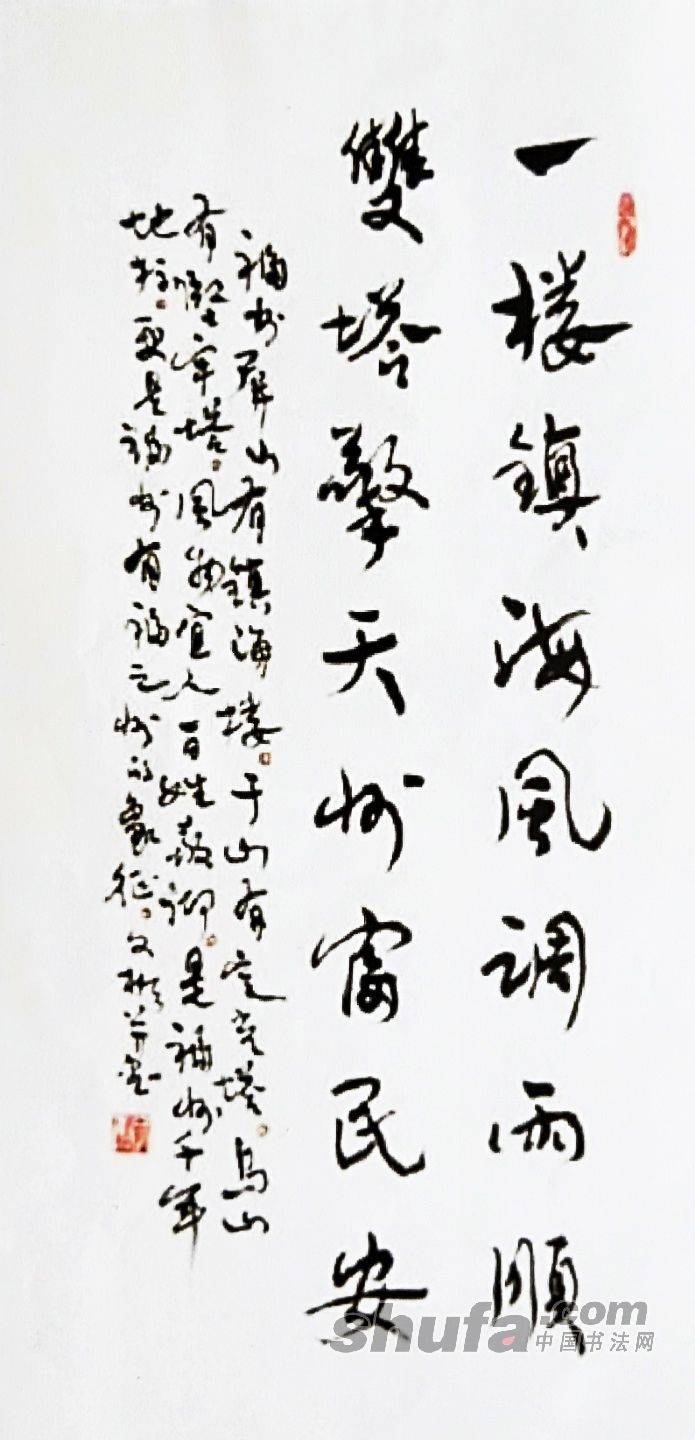 一楼鎮海風調雨順
雙塔擎天州富民安
福州屏山有鎮海楼。于山有定光塔。烏山
有堅牢塔。風物宜人百姓敬仰。是福州千年
地标。更是福州有福之州的象征。文彬并书
shufa.com
中国书法网